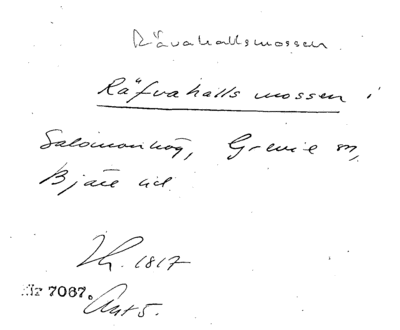 Rävahallsmossen
Räfvahalls mossen i
Salomonhög, Grevie sn,
Bjäre hd
Lh. 1817
Nr 7067.
Ant 5.